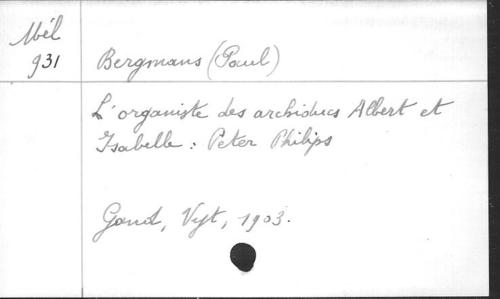 Mél
931
Bergmans (Paul)
L'organiste des archiducs Albert et
Isabelle : Peter Philips
Gand, Vyt, 1903.